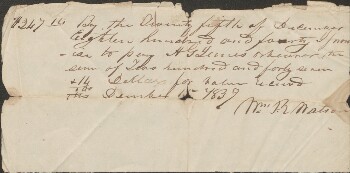 $247.16 By the twenty fifth of December
Eighteen hundred and forty I prom
ise to pay A G or the
sum of Two hundred and forty seven
16 Dollars for value received
This December 1839
Wm R Watson